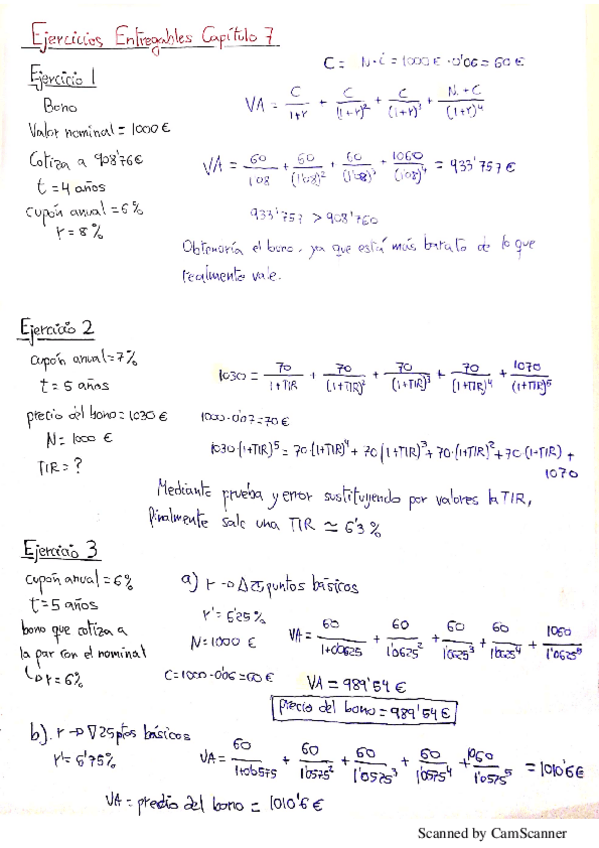 Ejercicios Entregables Capítulo 7
Ejercicio 1
C = N·i = 1000€ · 0'06 = 60€
Bono
Valor nominal = 1000€
Cotiza a 908'76€
t = 4 años
cupón anual = 6%
r = 8%
VA = C/(1+r) + C/(1+r)² + C/(1+r)³ + N+C/(1+r)⁴
VA = 60/1'08 + 60/(1'08)² + 60/(1'08)³ + 1060/(1'08)⁴ = 933'757€
933'757 > 908'760
Obtendría el bono, ya que está más barato de lo que
realmente vale.
Ejercicio 2
cupón anual = 7%
t = 5 años
precio del bono = 1030€
N = 1000 €
TIR = ?
1030 = 70/(1+TIR) + 70/(1+TIR)² + 70/(1+TIR)³ + 70/(1+TIR)⁴ + 1070/(1+TIR)⁵
1000·0'07 = 70€
1030(1+TIR)⁵ = 70·(1+TIR)⁴ + 70(1+TIR)³ + 70·(1+TIR)² + 70(1+TIR) +
1070
Mediante prueba y error sustituyendo por valores la TIR,
finalmente sale una TIR ≃ 6'3%
Ejercicio 3
cupón anual = 6%
t = 5 años
bono que cotiza a
la par con el nominal
↳ r = 6%
a) r → Δ25 puntos básicos
r' = 6'25%
N = 1000 €
C = 1000·0'06 = 60€
VA = 60/1+0'0625 + 60/1'0625² + 60/1'0625³ + 60/1'0625⁴ + 1060/1'0625⁵
VA = 989'54€
precio del bono = 989'54€
b). r → ∇25ptos básicos
r' = 6'75%
VA = 60/1+0'0575 + 60/1'0575² + 60/1'0575³ + 60/1'0575⁴ + 1060/1'0575⁵ = 1010'6€
VA = precio del bono = 1010'6€
Scanned by CamScanner